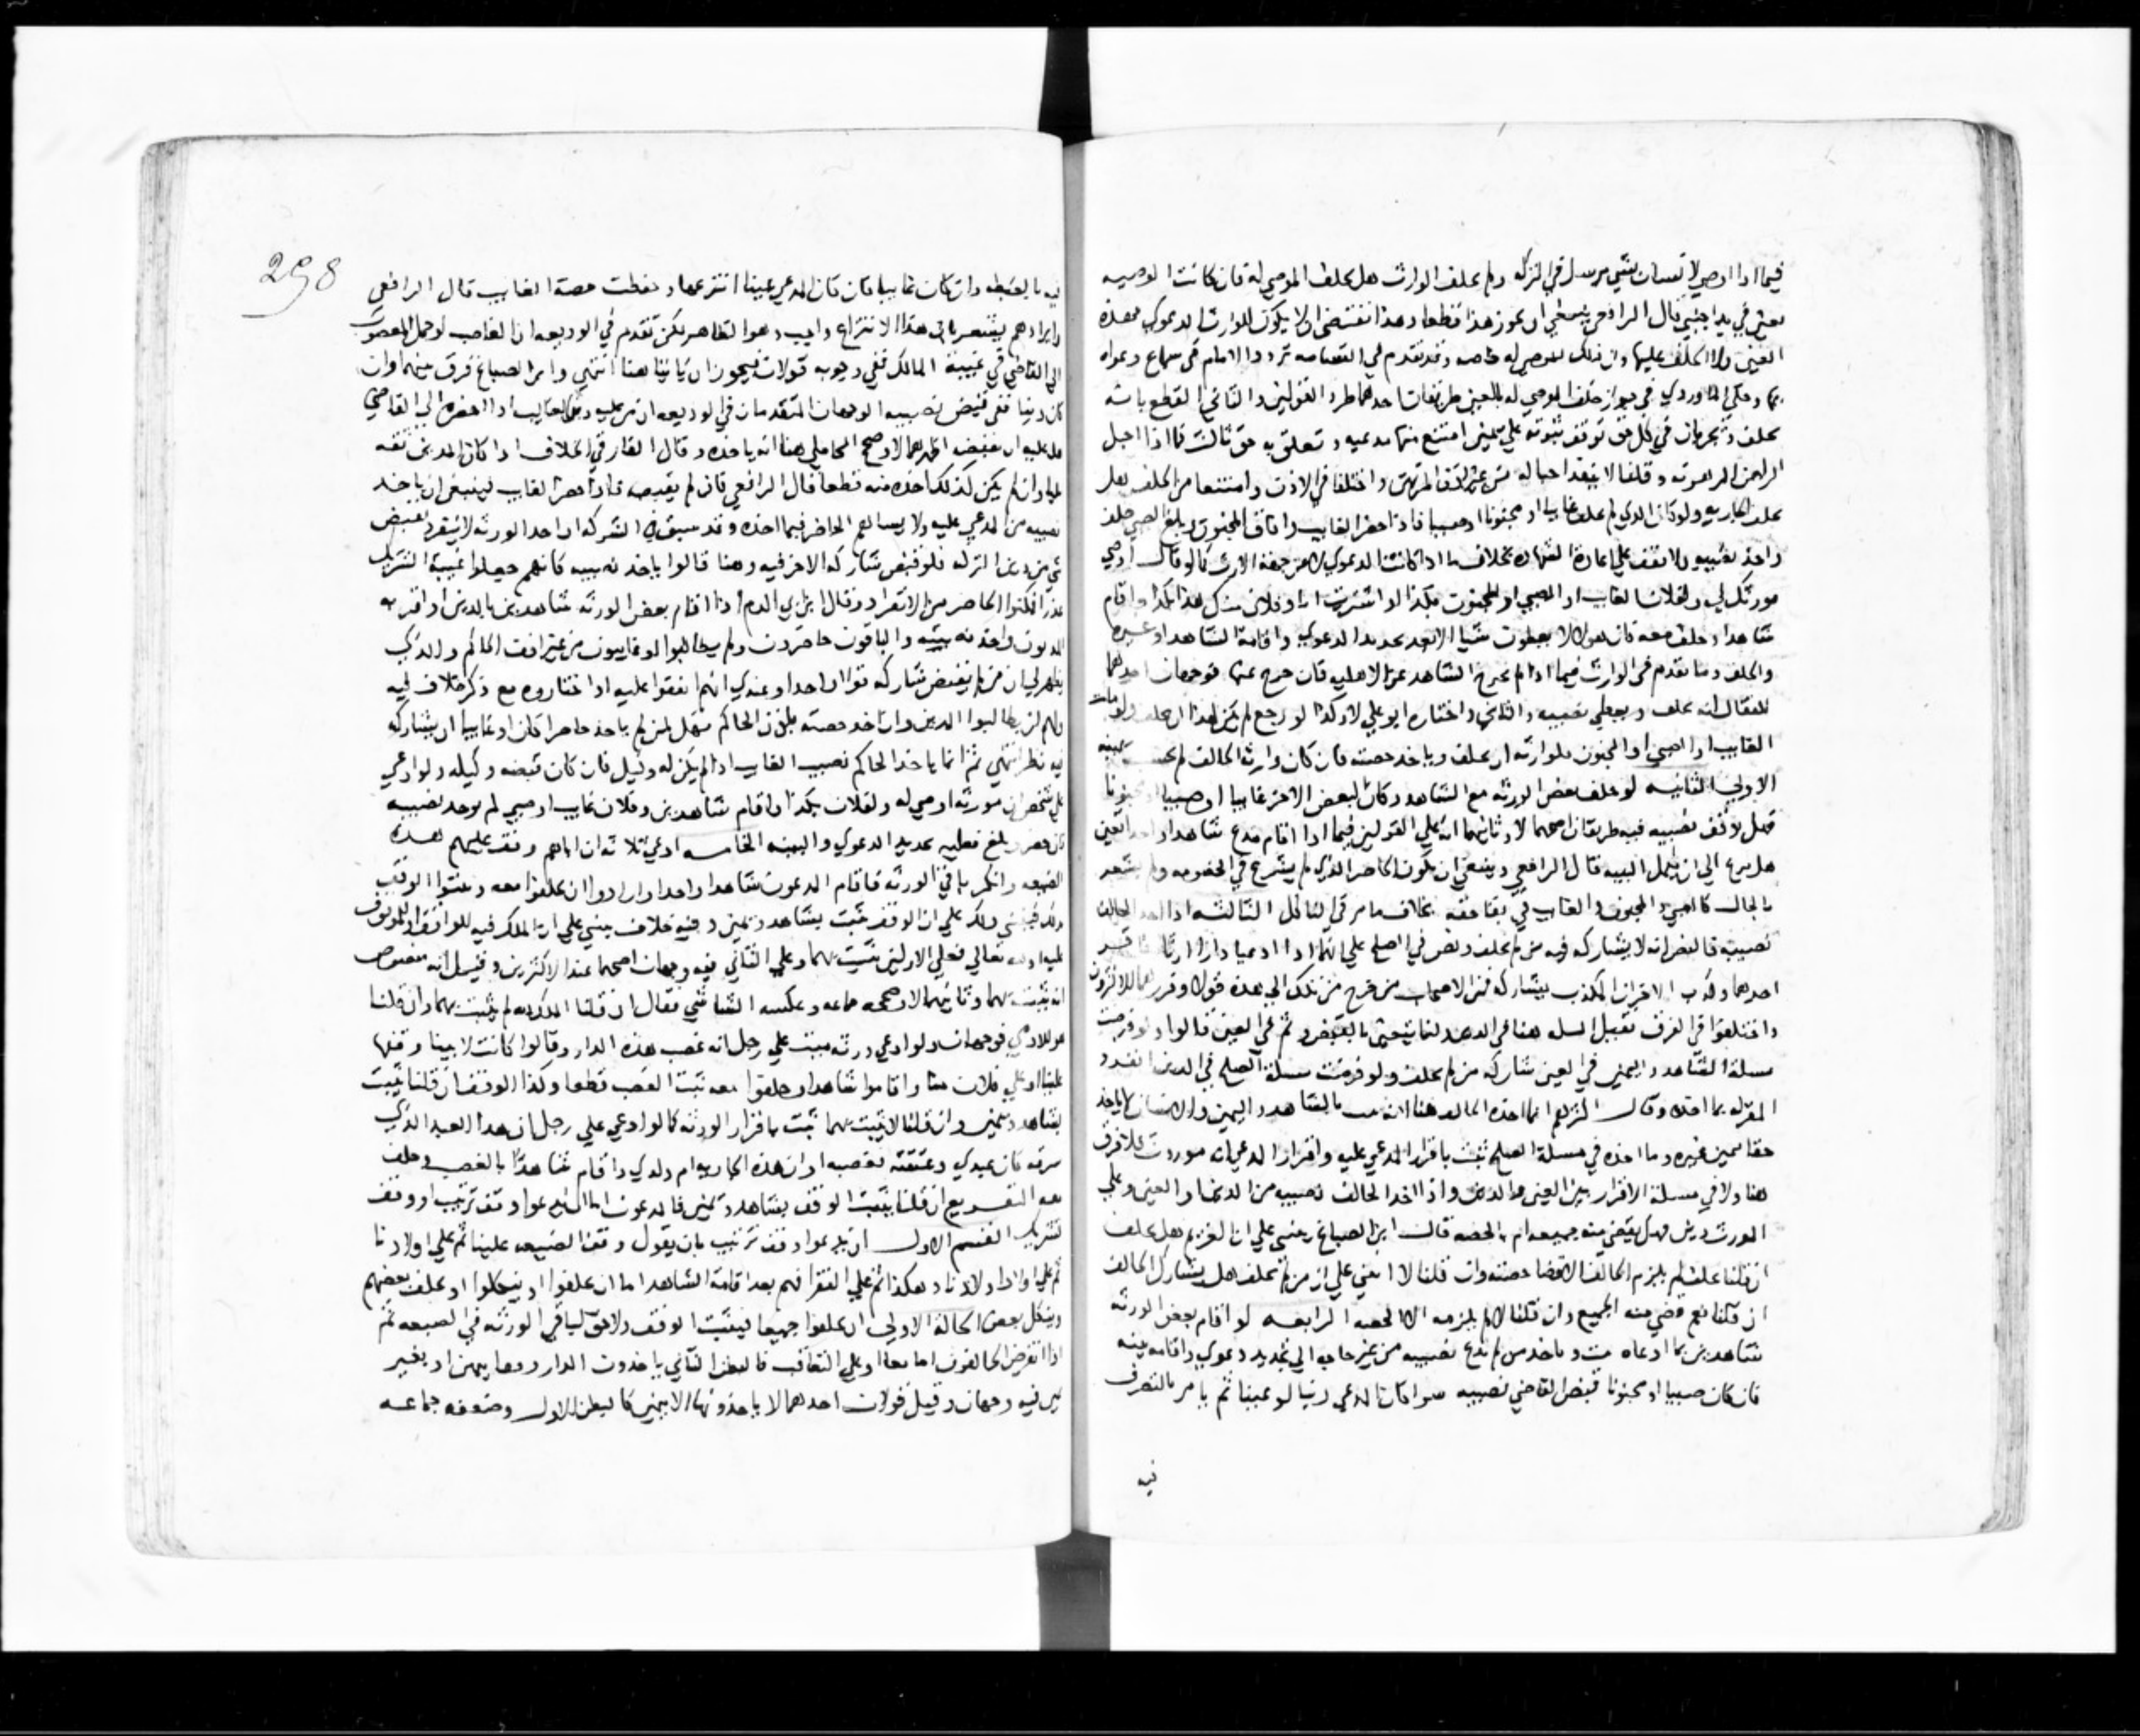 فيما اذا اوصي لانسان بشي مرسل في التركة ولم يحلف الوارث هل يحلف الموصي له فان كانت الوصيه
بعين في يد اجنبي قال الرافعي ينبغي ان يجوز هذا قطعا وهذا يقتضي ان لا يكون للوارث الدعوي بهذه
العين ولا الحلف عليها وان ذلك للموصي له خاصه وقد تقدم في القسامه تردد الامام في سماع دعواه
بها وحكي الماوردي في جواز حلف الموصي له بالعين طريقان احدهما طرد القولين والثاني القطع بانه
يحلف ويجريان في كل حق توقف ثبوته علي يمين امتنع منها مدعيه وتعلق به حق ثالث كما اذا احبل
الراهن المرهونه وقلنا لا ينفذ احباله واختلفا في الاذن وامتنعا من الحلف هل
تحلف الجاريه ولو كان الذي لم يحلف غايبا او مجنونا او صبيا فاذا حضر الغايب وافاق المجنون وبلغ الصبي حلف
واخذ نصيبه ولا تقف علي اعادة الشهاده بخلاف ما اذا كانت الدعوي لا من جهة الارث كما لو قال اوصي
مورثك لي ولفلان الغايب او الصبي او المجنون بكذا او اشتريت انا وفلان منك هذا بكذا واقام
شاهدا وحلف معه فان هولا لا يعطون شيا الا بعد تجديد الدعوي واقامة الشاهد او غيره
والحلف وما تقدم في الوارث فيما اذا لم يخرج الشاهد عن الاهليه فان خرج عنها فوجهان احدهما
للقفال انه يحلف ويعطي نصيبه والثاني واختاره ابو علي لا وكذا لو رجع لم يكن لهذا ان يحلف ولو مات
الغايب او الصبي او المجنون فلوارثه ان يحلف وياخذ حصته فان كان وارثه الحالف لم تحسب يمينه
الاولي الثانيه لو حلف بعض الورثه مع الشاهد وكان البعض الاخر غايبا او صبيا او مجنونا
فهل توقف نصيبه فيه طريقان اصحهما لا وثانيهما انه علي القولين فيما اذا اقام مدع شاهدا واحدا بعين
هل ينزع الي ان تكمل البينه قال الرافعي وينبغي ان يكون الحاضر الذي لم يشرع في الخصومه ولم يشعر
بالحال كالصبي والمجنون والغايب في بقا حقه بخلاف ما مر في الناكل الثالثه اذا اخذ الحالف
نصيبه فالنص انه لا يشاركه فيه من لم يحلف ونص في الصلح علي انهما اذا ادعيا دارا ارثا فاقر
احدهما وكذب الاخر ان المكذب يشاركه فمن الاصحاب من خرج من تلك الي هذه قولا وقررهما الاكثرون
واختلفوا في الفرق فقيل المسله هنا في الدين لتعينه بالقبض وثم في العين قالوا ولو فرضت
مسلة الشاهد واليمين في العين شاركه من لم يحلف ولو فرضت مسلة الصلح في الدين انفرد
المقر له بما اخذه وقال اكثرهم انما اخذه الحالف هنا انه ثبت بالشاهد واليمين والانسان لا ياخذ
حقا بيمين غيره وما اخذه في مسلة الصلح ثبت باقرار المدعي عليه واقرار المدعي انه موروث فلا فرق
هنا ولا في مسلة الاقرار بين العين والدين واذا اخذ الحالف نصيبه من الدين او العين وعلي
المورث دين فهل يقضي منه جميعه ام بالحصه قال ابن الصباغ ينبني علي ان الغريم هل يحلف
ان قلنا يحلف لم يلزم الحالف الا قضا حصته وان قلنا لا انبني علي ان من لم يحلف هل يشارك الحالف
ان قلنا نعم قضي منه الجميع وان قلنا لا لم يلزمه الا الحصه الرابعه لو اقام بعض الورثه
شاهدين بما ادعاه ثبت وياخذ من لم يدع نصيبه من غير حاجه الي تجديد دعوي واقامة بينه
فان كان صبيا او مجنونا قبض القاضي نصيبه سوا كان المدعي دينا او عينا ثم يامر بالتصرف
فيه
298
فيه بالغبطه وان كان غايبا فان كان المدعي عينا انتزعها وحفظت حصة الغايب قال الرافعي
وايرادهم يشعر بان هذا الانتزاع واجب وهو الظاهر لكن تقدم في الوديعه ان الغاصب لو حمل المغصوب
الي القاضي في غيبة المالك ففي وجوبه قولان فيجوز ان ياتيا هنا انتهي وابن الصباغ فرق بينهما وان
كان دينا ففي قبض نصيبه الوجهان المتقدمان في الوديعه ان من عليه دين للغايب اذا احضره الي القاضي
هل عليه ان يقبضه اظهرهما لا وصحح المحاملي هنا انه ياخذه وقال الفارقي الخلاف اذا كان المدين ثقه
مليا وان لم يكن كذلك اخذه منه قطعا قال الرافعي فان لم يقبضه فاذا حضر الغايب فينبغي ان ياخذ
نصيبه من المدعي عليه ولا يساهم الحاضر فيما اخذه وقد سبق في الشركه ان احد الورثه لا ينفرد بقبض
شي من دين التركه فلو قبض شاركه الاخر فيه وهنا قالوا ياخذ نصيبه كانهم جعلوا غيبة الشريك
عذرا فمكنوا الحاضر من الانفراد وقال ابن ابي الدم اذا اقام بعض الورثه شاهدين بالدين او اقر به
المديون واخذ نصيبه والباقون حاضرون ولم يطالبوا او غايبون من غير اذن الحاكم والذي
يظهر لي ان من لم يقبض شاركه قولا واحدا وعندي انهم اتفقوا عليه اذا اختاروه مع ذكر خلاف فيه
وان لم يطالبوا المدين وان اخذ حصته باذن الحاكم فهل لمن لم ياخذ حاضرا كان او غايبا ان يشاركه
فيه نظر انتهي ثم انما ياخذ الحاكم نصيب الغايب اذا لم يكن له وكيل فان كان قبضه وكيله ولو ادعي
علي شخص ان مورثه اوصي له ولفلان بكذا واقام شاهدين وفلان غايب او صبي لم يوخذ نصيبه
فان حضر وبلغ فعليه تجديد الدعوي والبينه الخامسه ادعي ثلاثه ان اباهم وقف عليهم هذه
الضيعه وانكر باقي الورثه فاقام المدعون شاهدا واحدا وارادوا ان يحلفوا معه ويثبتوا الوقف
وذلك علي ان الوقف يثبت بشاهد ويمين وفيه خلاف ينبني علي ان الملك فيه للواقف او للموقوف
عليه او لله تعالي فعلي الاولين يثبت بهما وعلي الثاني فيه وجهان اصحهما عند الاكثرين وقيل انه منصوص
انه يثبت بهما وثانيهما لا وصححه جماعه وعكسه الشاشي فقال ان قلنا الملك لله لم يثبت بهما وان قلنا
هو للادمي فوجهان ولو ادعي ورثة ميت علي رجل انه غصب هذه الدار وقالوا كانت لابينا وقفها
علينا او علي فلان واقاموا شاهدا وحلفوا معه ثبت الغصب قطعا وكذا الوقف ان قلنا يثبت
بشاهد ويمين وان قلنا لا يثبت بهما ثبت باقرار الورثه كما لو ادعي علي رجل ان هذا العبد الذي
كان عبدي وعتقته بغصبه او ان هذه الجاريه ام ولدي واقام شاهدا بالغصب وحلف
معه التفريع ان قلنا يثبت الوقف بشاهد ويمين فالمدعون اما ان يدعوا وقف ترتيب او وقف
تشريك القسم الاول ان يدعوا وقف ترتيب بان يقول وقف الضيعه علينا ثم علي اولادنا
ثم علي اولاد اولادنا وهكذا ثم علي الفقرا فهم بعد اقامة الشاهد اما ان يحلفوا او ينكلوا او يحلف بعضهم
وينكل بعض الحالة الاولي ان يحلفوا جميعا فيثبت الوقف ولا حق لباقي الورثه في الضيعه ثم
اذا انقرض الحالفون اما معا او علي التعاقب فالبطن الثاني ياخذون الدار وقفا بيمين او بغير
يمين فيه وجهان وقيل قولان احدهما لا ياخذونها الا بيمين كالبطن الاول وضعفه جماعه